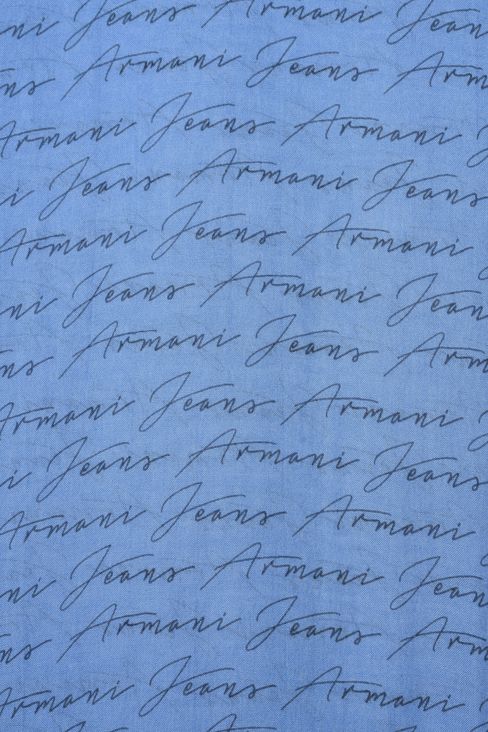 ni Jeans Armani Jeans
ns Armani Jeans Arm
Armani Jeans Armani J
i Jeans Armani Jeans
Armani Jeans Armani
ni Jeans Armani Jeans
ns Armani Jeans Arm
Armani Jeans Armani J
i Jeans Armani Jeans
Armani Jeans Armani
ni Jeans Armani Jeans
ns Armani Jeans Arm
Armani Jeans Armani